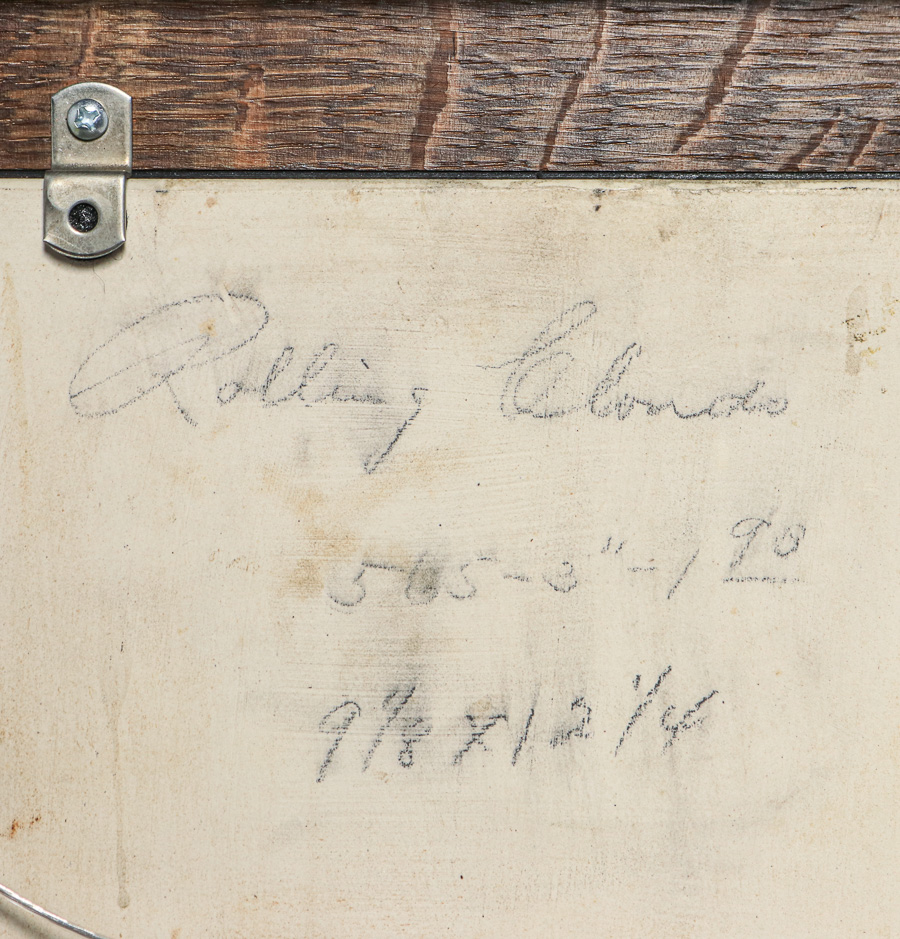 Rolling Clouds
565-3"-1 90
9 7/8 x 12 1/4